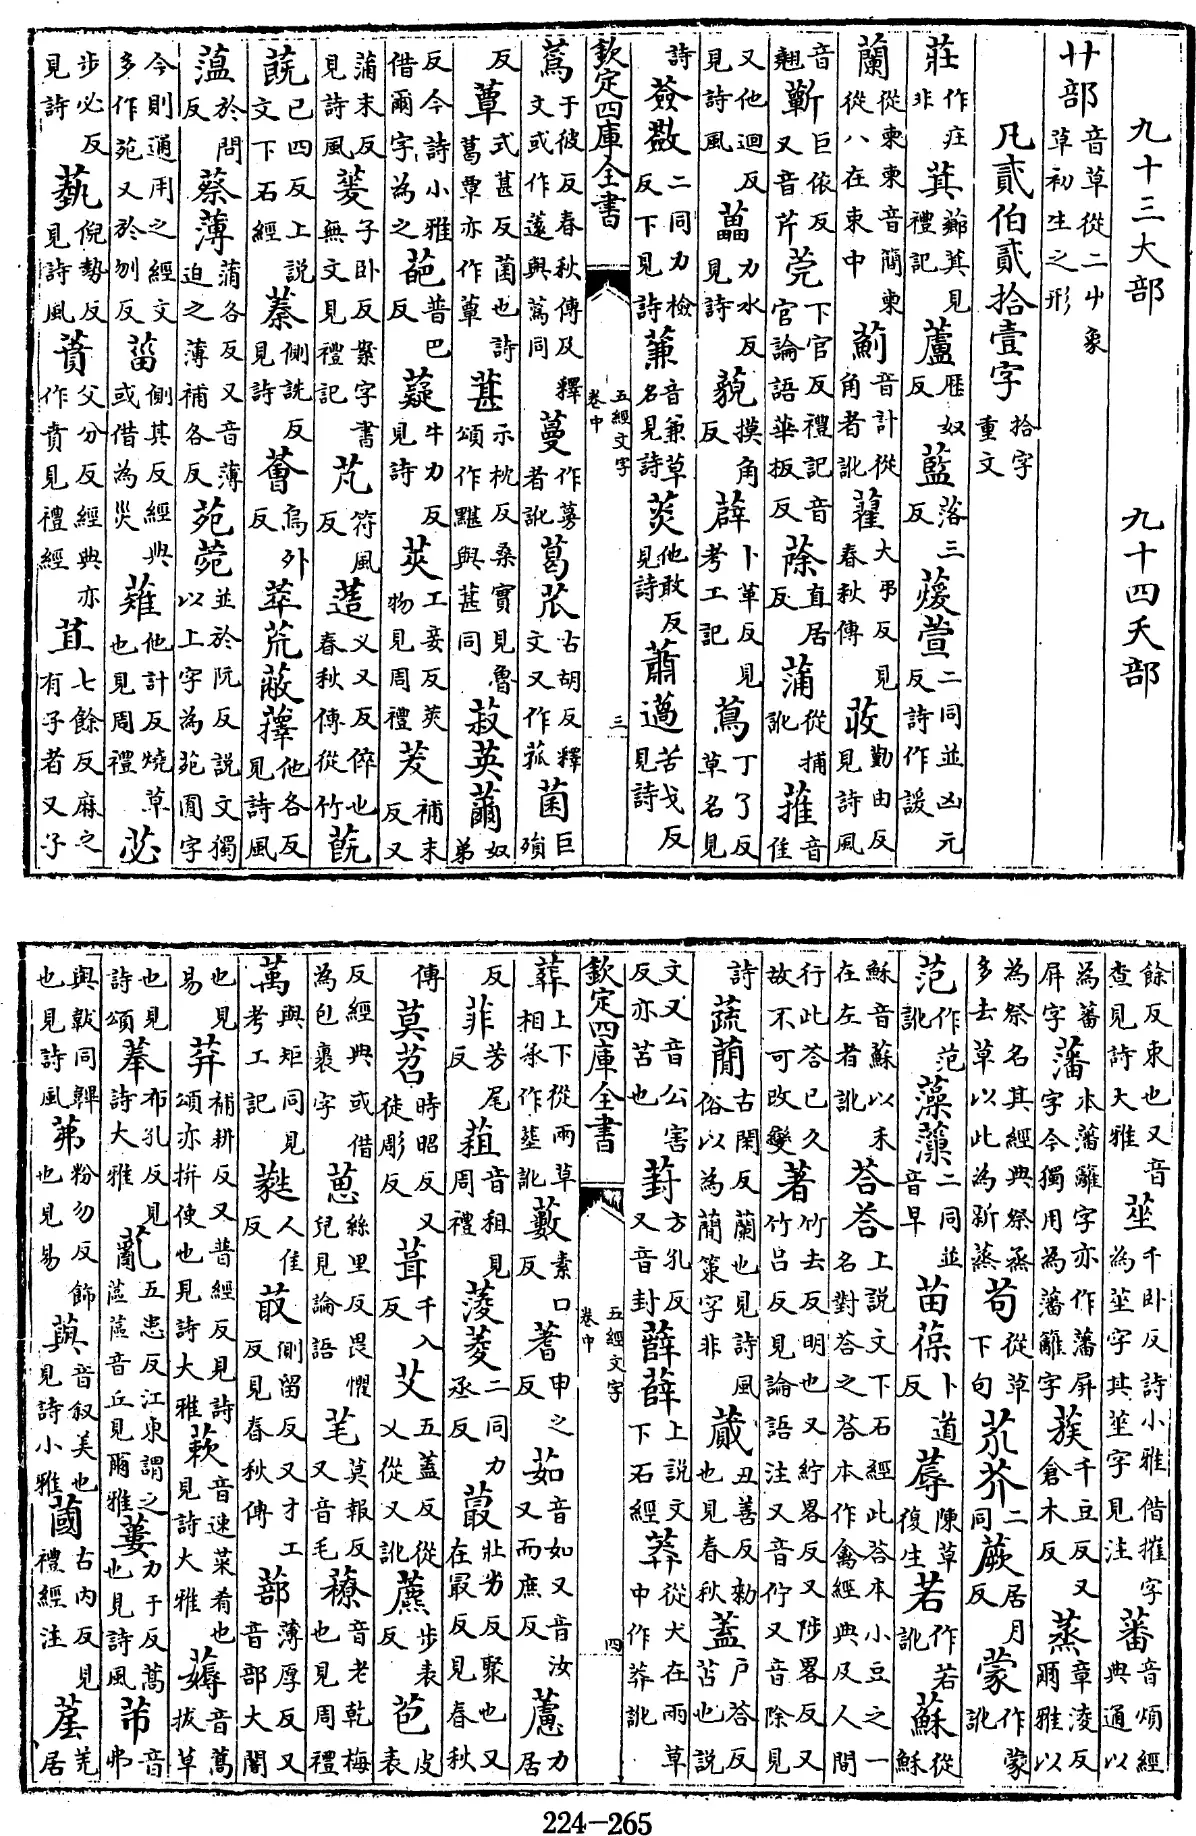 九十三大部 九十四夭部
艹部音草從二屮象草初生之形
凡貳伯貳拾壹字拾字重文
莊作庄非萁藄萁見禮記蘆歷奴反藍落三反萲萱二同並凶元反詩作諼
蘭從柬柬音簡柬從八在東中薊音計從角者訛藋大弔反見春秋傳荍勤由反見詩風
音翹蘄巨依反又音芹莞下官反禮記音官論語華板反蒢直居反蒲從捕訛蓷音隹
又他迴反見詩風藟力水反見詩藐摸角反薜卜革反見考工記蔦丁了反草名見
詩薟蘞二同力檢反下見詩蒹音兼草名見詩菼他敢反見詩蕭薖苦戈反見詩
欽定四庫全書 五經文字卷中 三
蒍于彼反春秋傳及釋文或作薳與蒍同蔓作蔓者訛葛苽古胡反釋文又作菰菌巨殞
反蕈式甚反菌也詩葛覃亦作蕈葚示枕反桑實見魯頌作黮與葚同菽英薾奴弟
反今詩小雅借爾字為之葩普巴反薿牛力反見詩莢工妾反莢物見周禮茇補末反又
蒲末反見詩風蓌子卧反案字書無文見禮記芃符風反 又反倅也春秋傳從竹
已四反上說文下石經蓁側詵反見詩薈烏外反萃荒蔽蘀他各反見詩風
薀於問反蔡薄蒲各反又音薄迫之薄補各反苑菀並於阮反說文獨以上字為苑囿字
今則通用之經文多作苑又於刎反菑側其反經典或借為災薙他計反燒草也見周禮苾
步必反見詩蓺倪勢反見詩風蕡父分反經典亦作賁見禮經苴七餘反麻之有子者又子
餘反束也又音查見詩大雅莝千卧反詩小雅借摧字為莝字其莝字見注蕃音煩經典通以
為蕃屏字藩本藩籬字亦作藩屏字今獨用為藩籬字蔟千豆反又倉木反蒸章淩反爾雅以
為祭名其經典祭烝多去草以此為薪蒸苟從草下句芥二同蕨居月反蒙作蒙訛
范作范訛藻薻二同並音早苗葆卜道反蓐陳草復生若作若訛蘇從穌
穌音蘇以禾在左者訛荅答上說文下石經此荅本小豆之一名對荅之荅本作畣經典及人間
行此荅已久故不可改變著竹去反明也又紵畧反又陟畧反又竹呂反見論語注又音佇又音除見
詩蔬蕑古閑反蘭也見詩風俗以為蕑策字非蕆丑善反勑也見春秋蓋戶荅反苫也說
文又音公害反亦苫也葑方孔反又音封薛上說文下石經莽從犬在兩草中作莽訛
欽定四庫全書 五經文字卷中 四
葬上下從兩草相承作塟訛藪素口反蓍申之反茹音如又音汝又而庶反藘力居
反菲芳尾反蒩音租見周禮蔆菱二同力丞反蕞壯劣反聚也又在最反見春秋
傳莫苕時昭反又徒彫反葺千入反艾五蓋反從乂從又訛藨步表反苞皮表
反經典或借為包裹字葸絲里反畏懼皃見論語芼莫報反又音毛䕩音老乾梅也見周禮
萬與矩同見考工記蕤人隹反菆側留反又才工反見春秋傳蔀薄厚反又音部大闇
也見易荓補耕反又普經反見詩頌亦拼使也見詩大雅蔌音速菜肴也見詩大雅薅音蒿拔草
也見詩頌菶布孔反見詩大雅薍五患反江東謂之蓲蓲音丘見爾雅蔞力于反蒿也見詩風芾音弗
與韍同韠也見詩風茀粉勿反飾也見易藇音叙美也見詩小雅蔮古內反見禮經注羌居
224-265